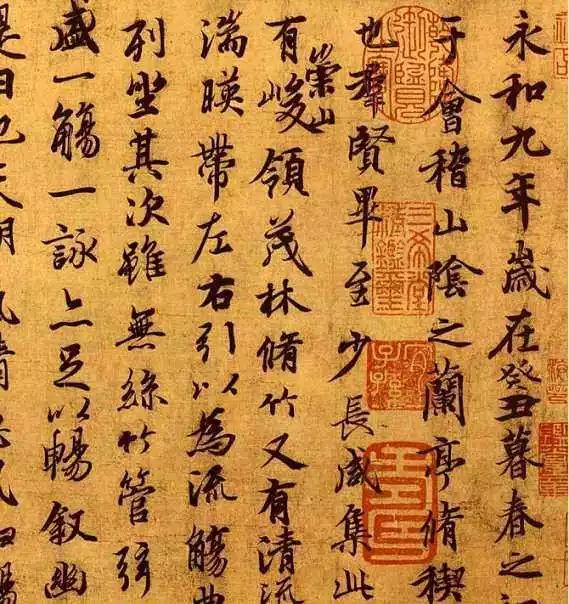 永和九年歲在癸丑暮春之初
于會稽山陰之蘭亭脩稧
也群賢畢至少長咸集此
有崇山峻領茂林脩竹又有清流
湍暎帶左右引以為流觴曲
列坐其次雖無絲竹管弦
盛一觴一詠亦足以暢敘幽
是日也天朗氣清
三希堂精鑑璽
宜子孫